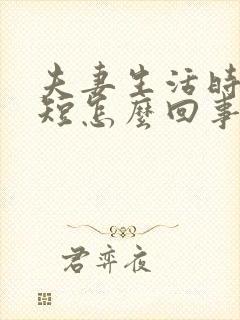 夫妻生活時
短怎麼回事
君弈夜